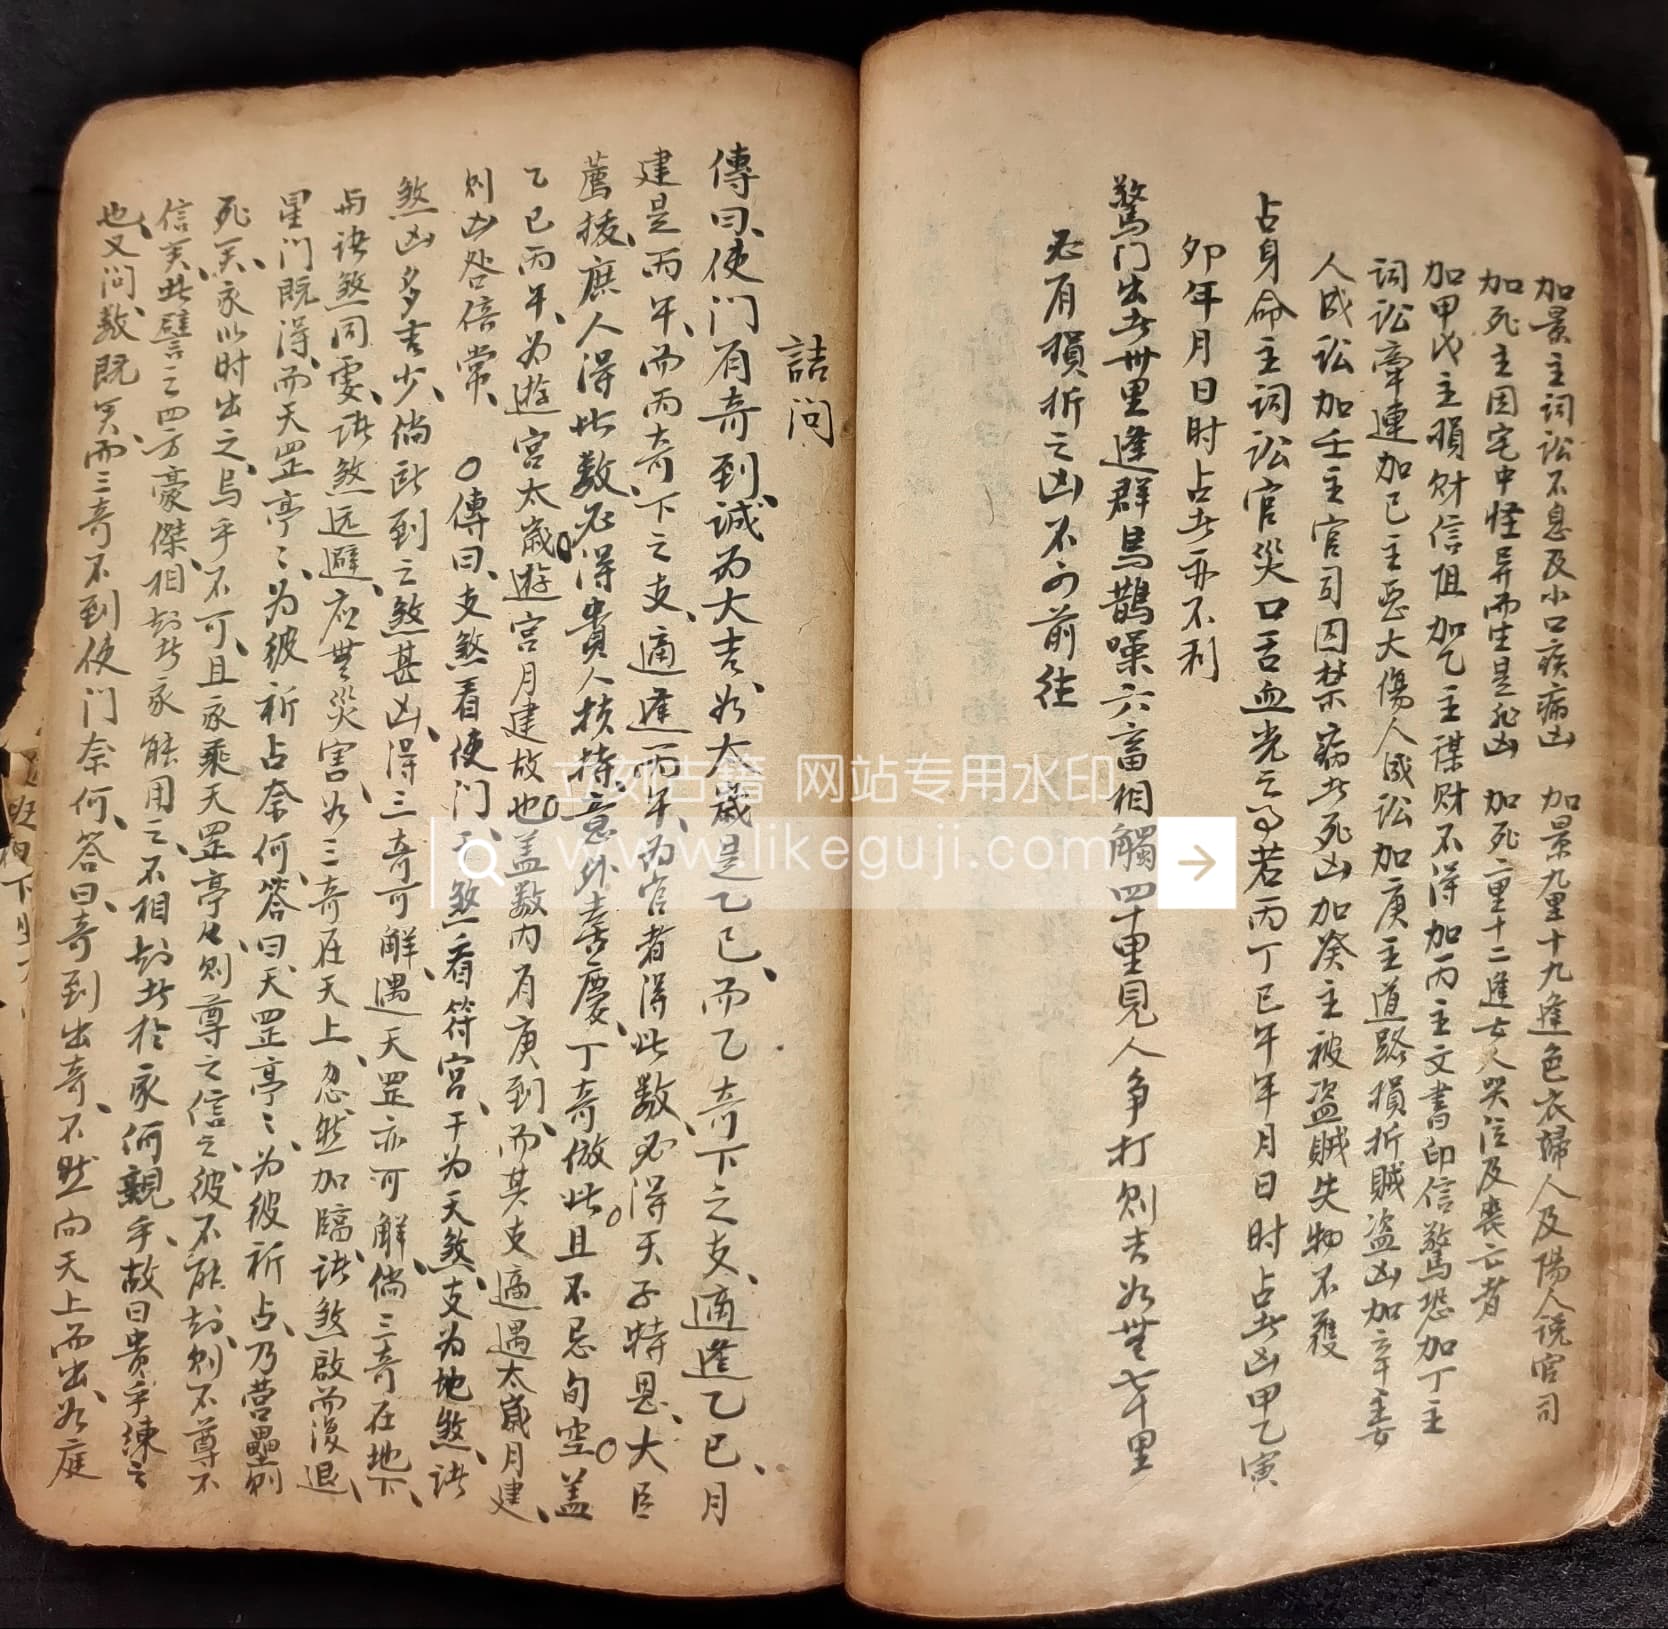 加景主詞訟不息及小口疾病凶　加景九里十九逢色衣婦人及陽人說官司
加死主因宅中怪异而生是非凶　加死二里十二逢女人哭泣及喪亡者
加甲戊主損財信阻加乙主謀財不得加丙主文書印信驚恐加丁主
詞訟牽連加己主惡大傷人成訟加庚主道路損折賊盗凶加辛主委
人成訟加壬主官司囚禁病者死凶加癸主被盗賊失物不獲
占身命主詞訟官災口舌血光之事若丙丁巳午年月日时占者凶甲乙寅
卯年月日时占者亦不利
驚门出者卅里逢群烏鵲噪六畜相觸四十里見人争打則吉如無七十里
必有損折之凶不可前往
詰问
傳曰、使门有奇到、誠为大吉、如太歲是乙巳、而乙奇下之支、適逢乙巳、月
建是丙午、而丙奇下之支、適逢丙午、为官者得此数、必得天子特恩、大臣
薦拔、庶人得此数、必得貴人扶持、意外喜慶、丁奇倣此。且不忌旬空。盖
乙巳丙午、为遊宫太歲。遊宫月建故也。盖数内有庚到、而其支適遇太歲月建、
則凶咎倍常、　○傳曰、支煞看使门、干煞看符宫、干为天煞、支为地煞、諸
煞凶多吉少、倘所到之煞甚凶、得三奇可解、遇天罡亦可解、倘三奇在地下、
與諸煞同宫、諸煞远避、应無災害、如三奇在天上、忽然加臨、諸煞啟而復退、
星门既得、而天罡亭亭、为彼祈占奈何、答曰、天罡亭亭、为彼祈占、乃营壘則
死矣、永以时出之、烏乎不可、且永乘天罡亭亭、則尊之信之、彼不能刼、則不尊不
信矣、此譬之四方豪傑、相刼者永能用之、不相刼者於永何親乎、故曰贵乎練之
也、又问、数既矣、而三奇不到使门奈何、答曰、奇到出奇、不然向天上而出、如庭